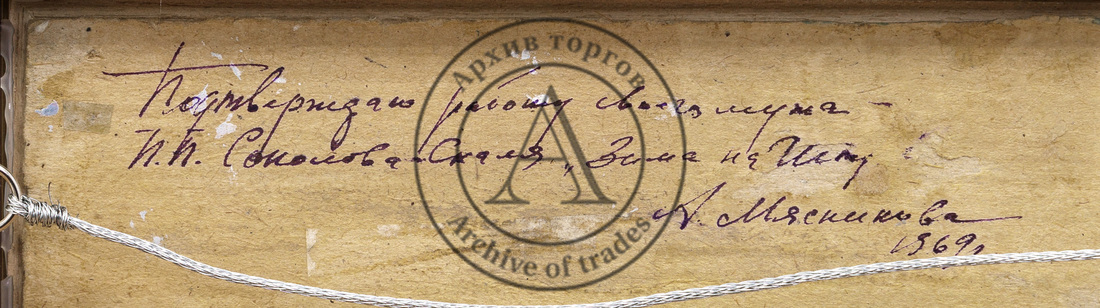 Подтверждаю работу моего мужа -
П.П. Соколова-Скаля „Зима на
А. Мясникова
1969г
Архив торгов
A
Archive of trades